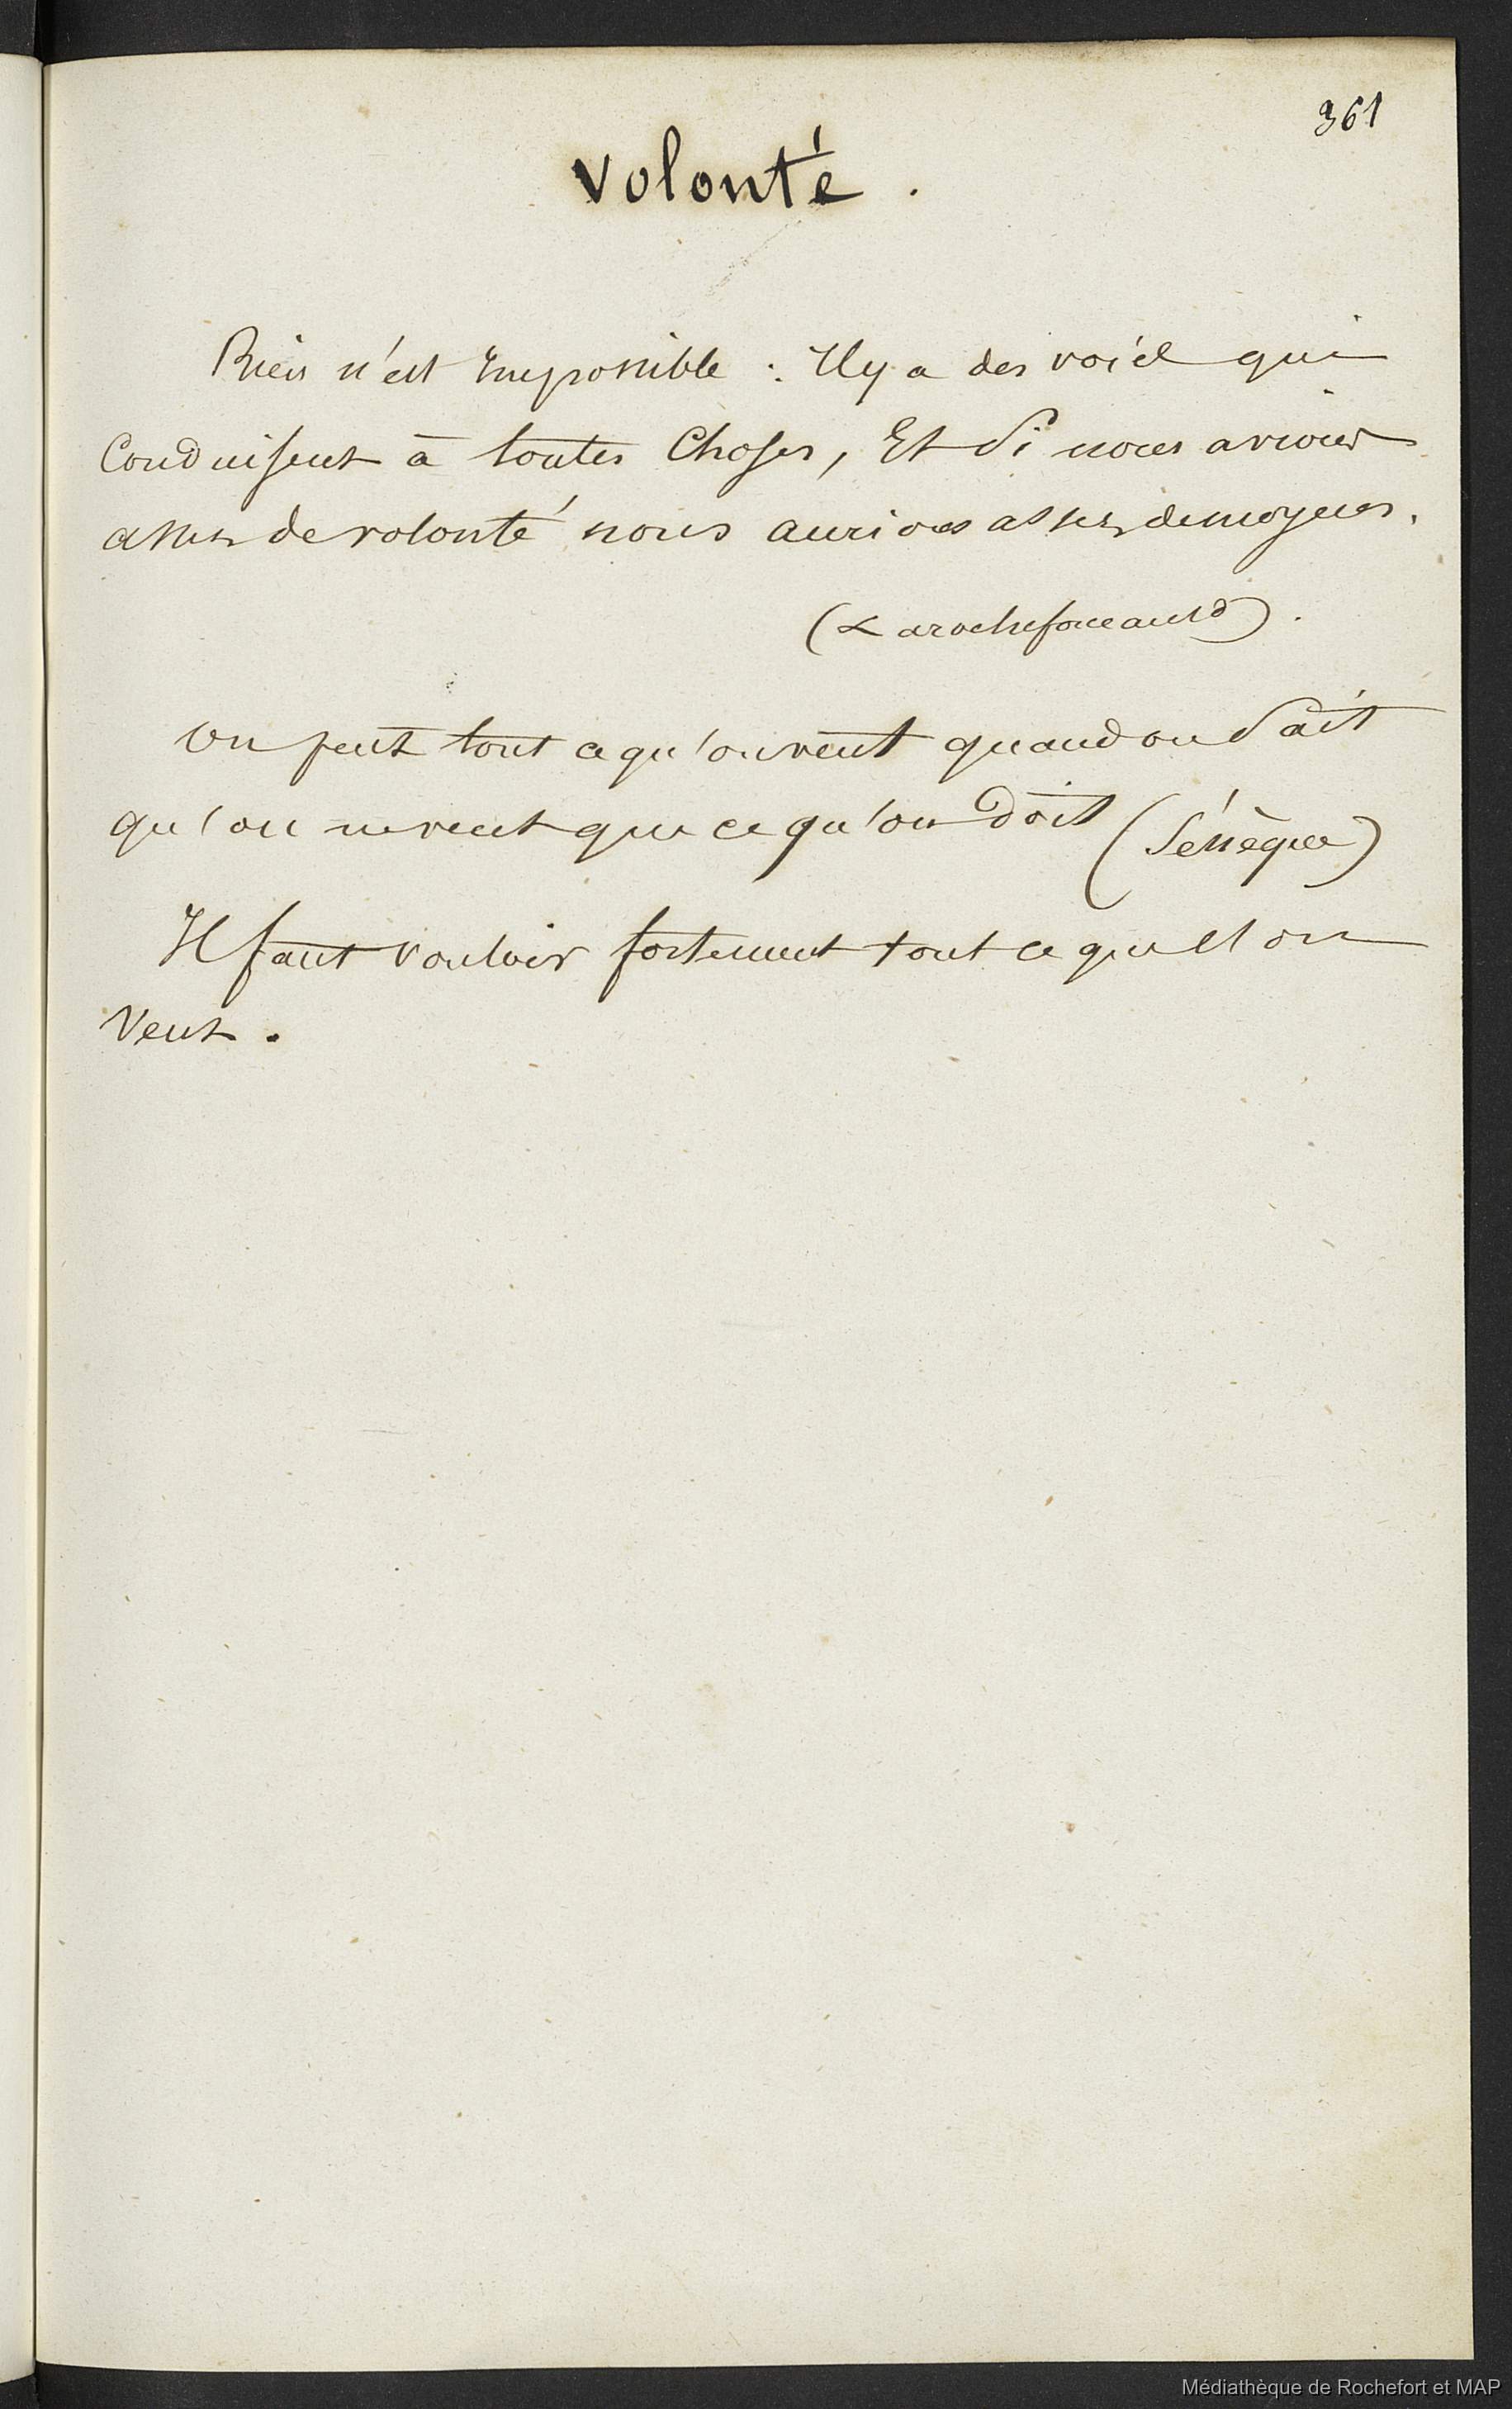 361
Volonté.
Rien n'est Impossible : Il y a des voies qui
Conduisent à toutes Choses, Et Si nous avions
assez de volonté nous aurions assez de moyens.
(Larochefoucauld).
On peut tout ce qu'on veut quand on Sait
qu'on ne veut que ce qu'on Doit (Sénèque)
Il faut vouloir fortement tout ce que l'on
Veut.
Médiathèque de Rochefort et MAP